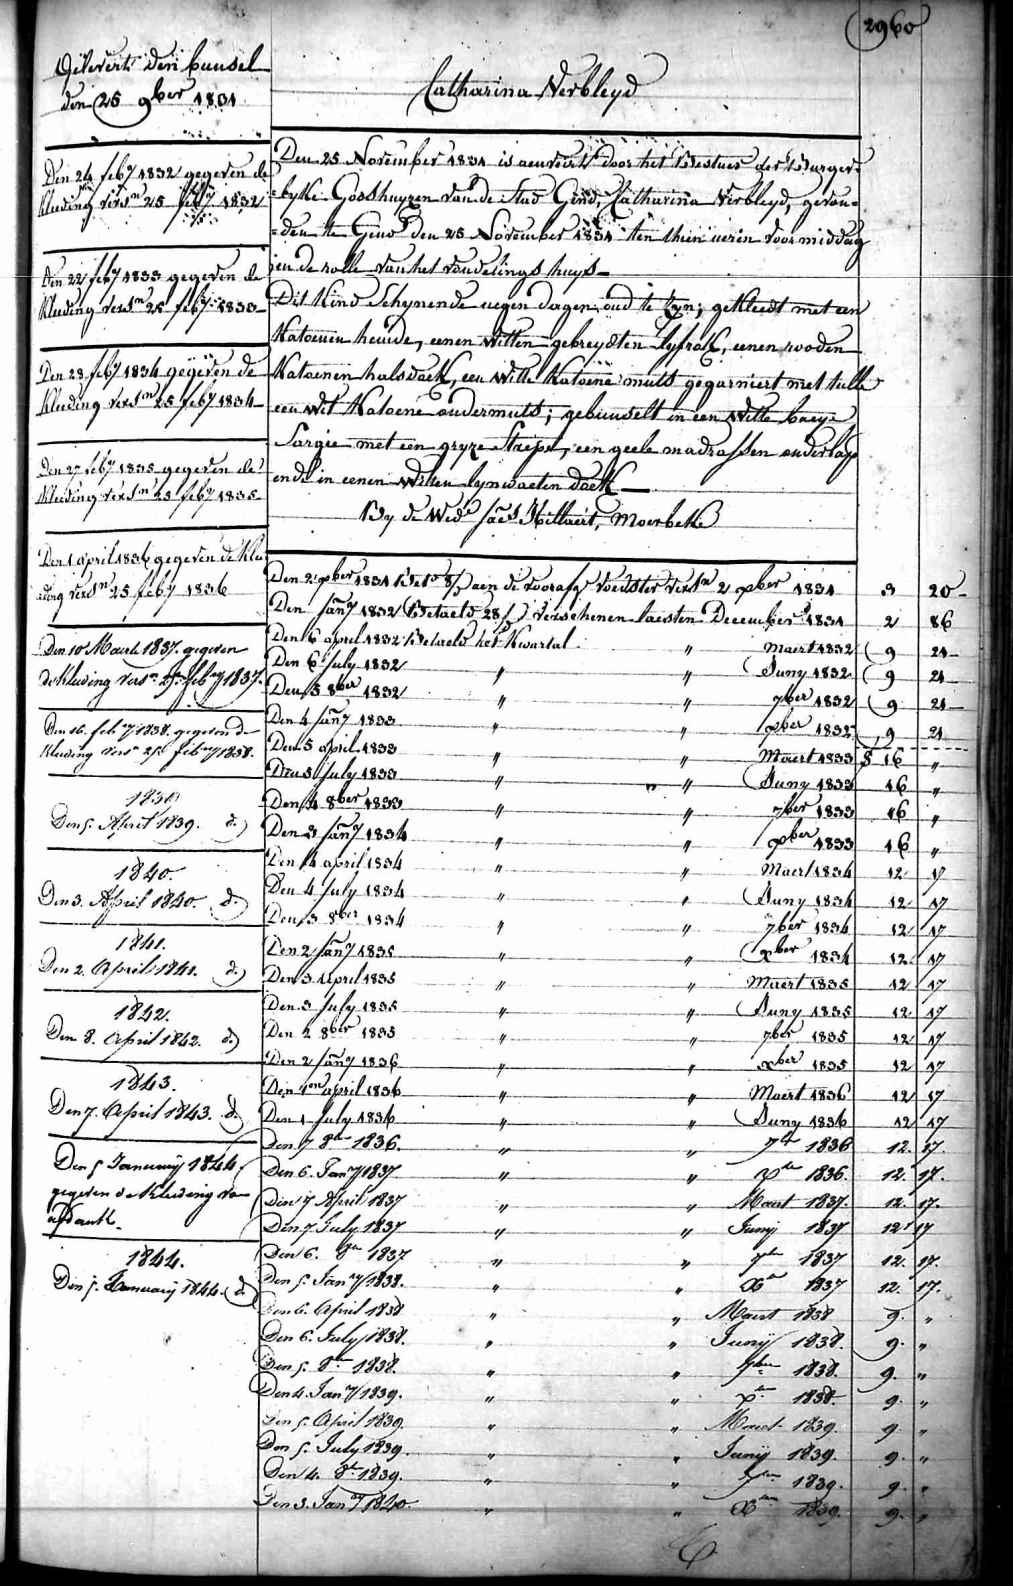 2960
Gelevert den bunsel
den 25 9ber 1831
Catharina Verbleyd
Den 24 feby 1832 gegeven de
kleeding versn 25 feby 1832
Den 22 feby 1833 gegeven de
kleeding versn 25 feby 1833
Den 28 feby 1834 gegeven de
kleeding versn 25 feby 1834
Den 27 feby 1835 gegeven de
kleeding versn 25 feby 1835
Den 1 april 1836 gegeven de klee
ding versn 25 feby 1836
Den 10 Maert 1837 gegeven
de kleeding versn 25 febry 1837.
Den 16 febry 1838. gegeven de
kleeding versn 25 febry 1838.
1839
Den 5. April 1839. d.
1840.
Den 3. April 1840. d.
1841.
Den 2. April 1841. d.
1842.
Den 8. April 1842. d.
1843.
Den 7. April 1843. d.
Den 5 January 1844.
gegeven de kleeding
1844.
Den 5. January 1844. d.
Den 25 November 1831 is aenveert door het Bestuer der Burger-
-lyke Godshuyzen van de Stad Gend, Catharina Verbleyd, gevon-
-den te Gend den 25 November 1831 ten thien ueren voormiddag
in de rolle van het vondelings huys
Dit Kind schynende eegen dagen oud te zyn; gekleedt met een
Katoenen hemde, eenen witten gebreydten Lyfrok, eenen rooden
Katoenen halsdoek, een witte Katoene muts gegarniert met tulle
een wit Katoene ondermuts; gebunselt in een Witte baeye
Sargie met een gryze Strepe, een geele madrassen onderlap
ende in eenen witten lynwaeten doek
By de Wede Jacs Hillaert, Moerbeke
Den 2 xber 1831 Betd aen de voorafg voedster versn 2 xber 1831 3 20
Den Jany 1832 Betaeld 28/ verschenen laesten December 1831 2 86
Den 6 april 1832 Betaeld het Kwartal " Maert 1832 9 24
Den 6 July 1832 " " Juny 1832 9 24
Den 5 8ber 1832 " " 7ber 1832 9 24
Den 4 Jany 1833 " " xber 1832 9 24
Den 5 april 1833 " " Maert 1833 f 16 "
Den 5 July 1833 " " Juny 1833 16 "
Den 4 8ber 1833 " " 7ber 1833 16 "
Den 3 Jany 1834 " " xber 1833 16 "
Den 4 april 1834 " " Maert 1834 12 17
Den 4 July 1834 " " Juny 1834 12 17
Den 3 8ber 1834 " " 7ber 1834 12 17
Den 2 Jany 1835 " " xber 1834 12 17
Den 3 April 1835 " " Maert 1835 12 17
Den 3 July 1835 " " Juny 1835 12 17
Den 2 8ber 1835 " " 7ber 1835 12 17
Den 2 Jany 1836 " " xber 1835 12 17
Den 1en april 1836 " " Maert 1836 12 17
Den 1 July 1836 " " Juny 1836 12 17
Den 7 8ber 1836. " " 7ber 1836 12. 17.
Den 6. Jany 1837 " " xber 1836. 12. 17.
Den 7 April 1837 " " Maert 1837. 12. 17.
Den 7. July 1837 " " Junij 1837 12 17
Den 6. 8er 1837 " " 7ber 1837 12. 17.
Den 5. Jany 1838. " " Xer 1837 12. 17.
Den 6. April 1838 " " Maert 1838 9. "
Den 6. July 1838. " " Junij 1838. 9. "
Den 5. 8er 1838. " " 7ber 1838. 9. "
Den 4. Jany 1839. " " xer 1838. 9. "
Den 5. April 1839. " " Maert 1839. 9. "
Den 5. July 1839. " " Junij 1839. 9. "
Den 4. 8er 1839. " " 7ber 1839. 9. "
Den 3. Jany 1840. " " Xber 1839. 9. "